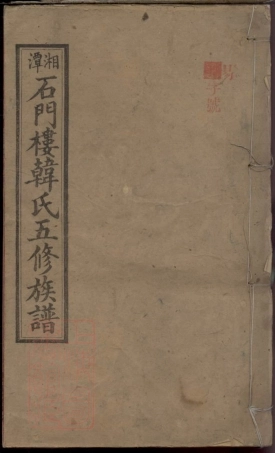 湘潭
石門樓韓氏五修族譜